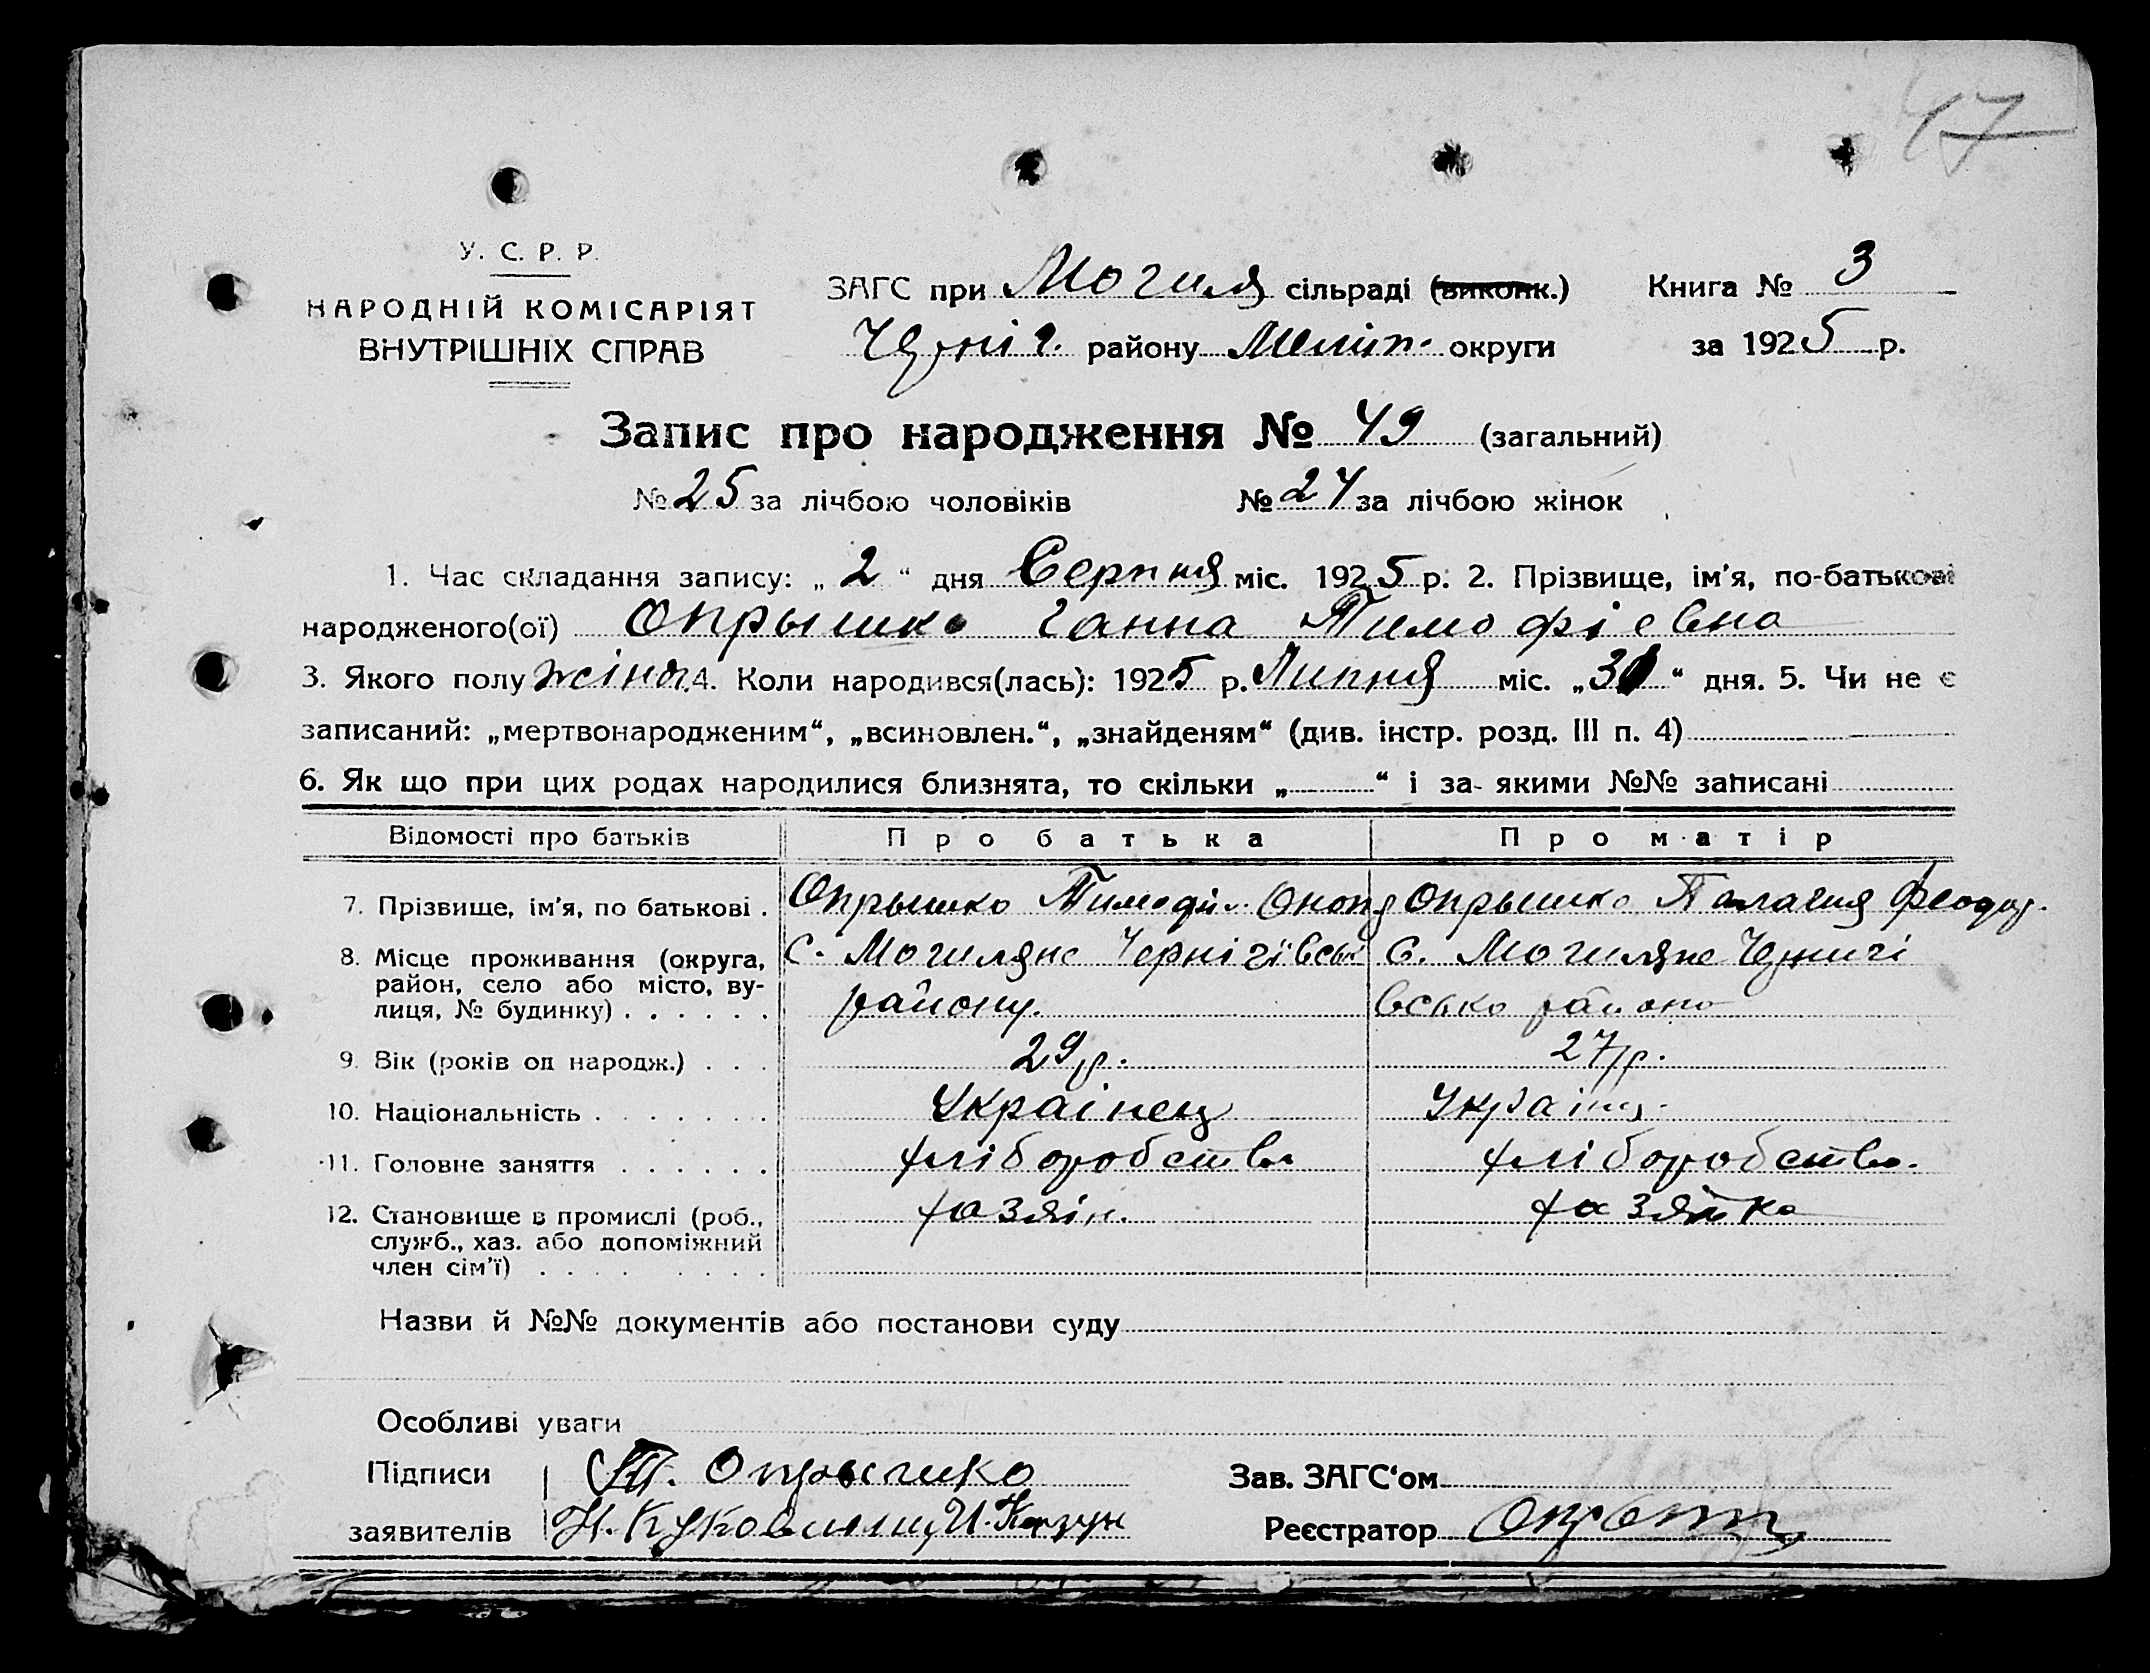 47
У. С. Р. Р.
НАРОДНІЙ КОМІСАРІЯТ
ВНУТРІШНІХ СПРАВ
ЗАГС при Могиля сільраді (виконк.) Книга № 3
Черніг. району Меліт. округи за 1925 р.
Запис про народження № 49 (загальний)
№ 25 за лічбою чоловіків № 24 за лічбою жінок
1. Час складання запису: „ 2 “ дня Серпня міс. 1925 р. 2. Прізвище, ім’я, по-батькові
народженого(ої) Опрышко Ганна Тимофіевна
3. Якого полу жіноч. 4. Коли народився(лась): 1925 р. Липня міс. „ “ дня. 5. Чи не є
записаний: „мертвонародженим“, „всиновлен.“, „знайденям“ (див. інстр. розд. III п. 4)
6. Як що при цих родах народилися близнята, то скільки „ “ і за якими №№ записані
Відомості про батьків Про батька Про матір
7. Прізвище, ім’я, по батькові . Опрышко Тимофій Опрышко Палагия Феодор.
8. Місце проживання (округа, район, село або місто, вулиця, № будинку) . . . . . . С. Могиляне Чернігівськ району. С. Могиляне Чернигівсько району
9. Вік (років од народж.) . . . 29 р. 27 р.
10. Національність . . . . . . . Українец Україн.
11. Головне заняття . . . . . . хліборобство хліборобство.
12. Становище в промислі (роб., служб., хаз. або допоміжний член сім’ї) . . . . . . . . хазяін. хазяйка
Назви й №№ документів або постанови суду
Особливі уваги
Підписи Т. Опрышко Зав. ЗАГС‘ом
заявителів Реєстратор